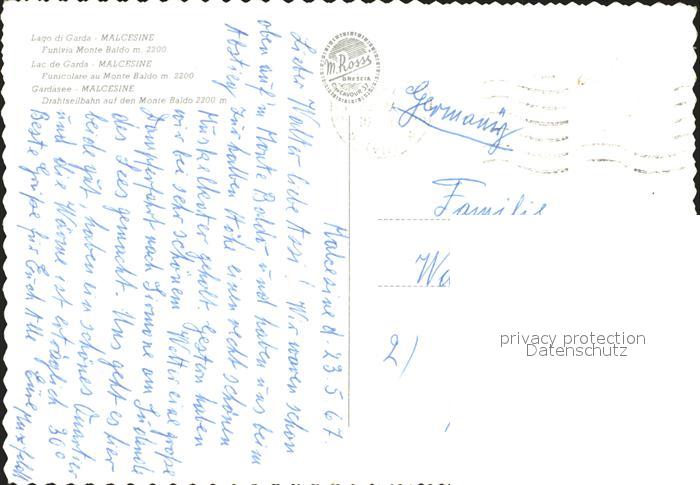 Lago di Garda - MALCESINE
Funivia Monte Baldo m. 2200
Lac de Garda - MALCESINE
Funicolare au Monte Baldo m. 2200
Gardasee - MALCESINE
Drahtseilbahn auf den Monte Baldo 2200 m
m. Rossi
BRESCIA
C. CAVOUR 37
Germany
Familie
Wa
2)
privacy protection
Datenschutz
Malcesine d. 23.5.67.
Lieber Walter, liebe Assi! Wir waren schon
oben auf'm Monte Baldo und haben uns beim
Abstieg zur halben Höhe einen recht schönen
Muskelkater geholt. Gestern haben
wir bei sehr schönem Wetter eine große
Dampferfahrt nach Sirmione am Südende
des Sees gemacht. Uns geht es hier
beide gut, haben ein schönes Quartier
und die Wärme ist erträglich 30°
Beste Grüße für Euch Alle Eure